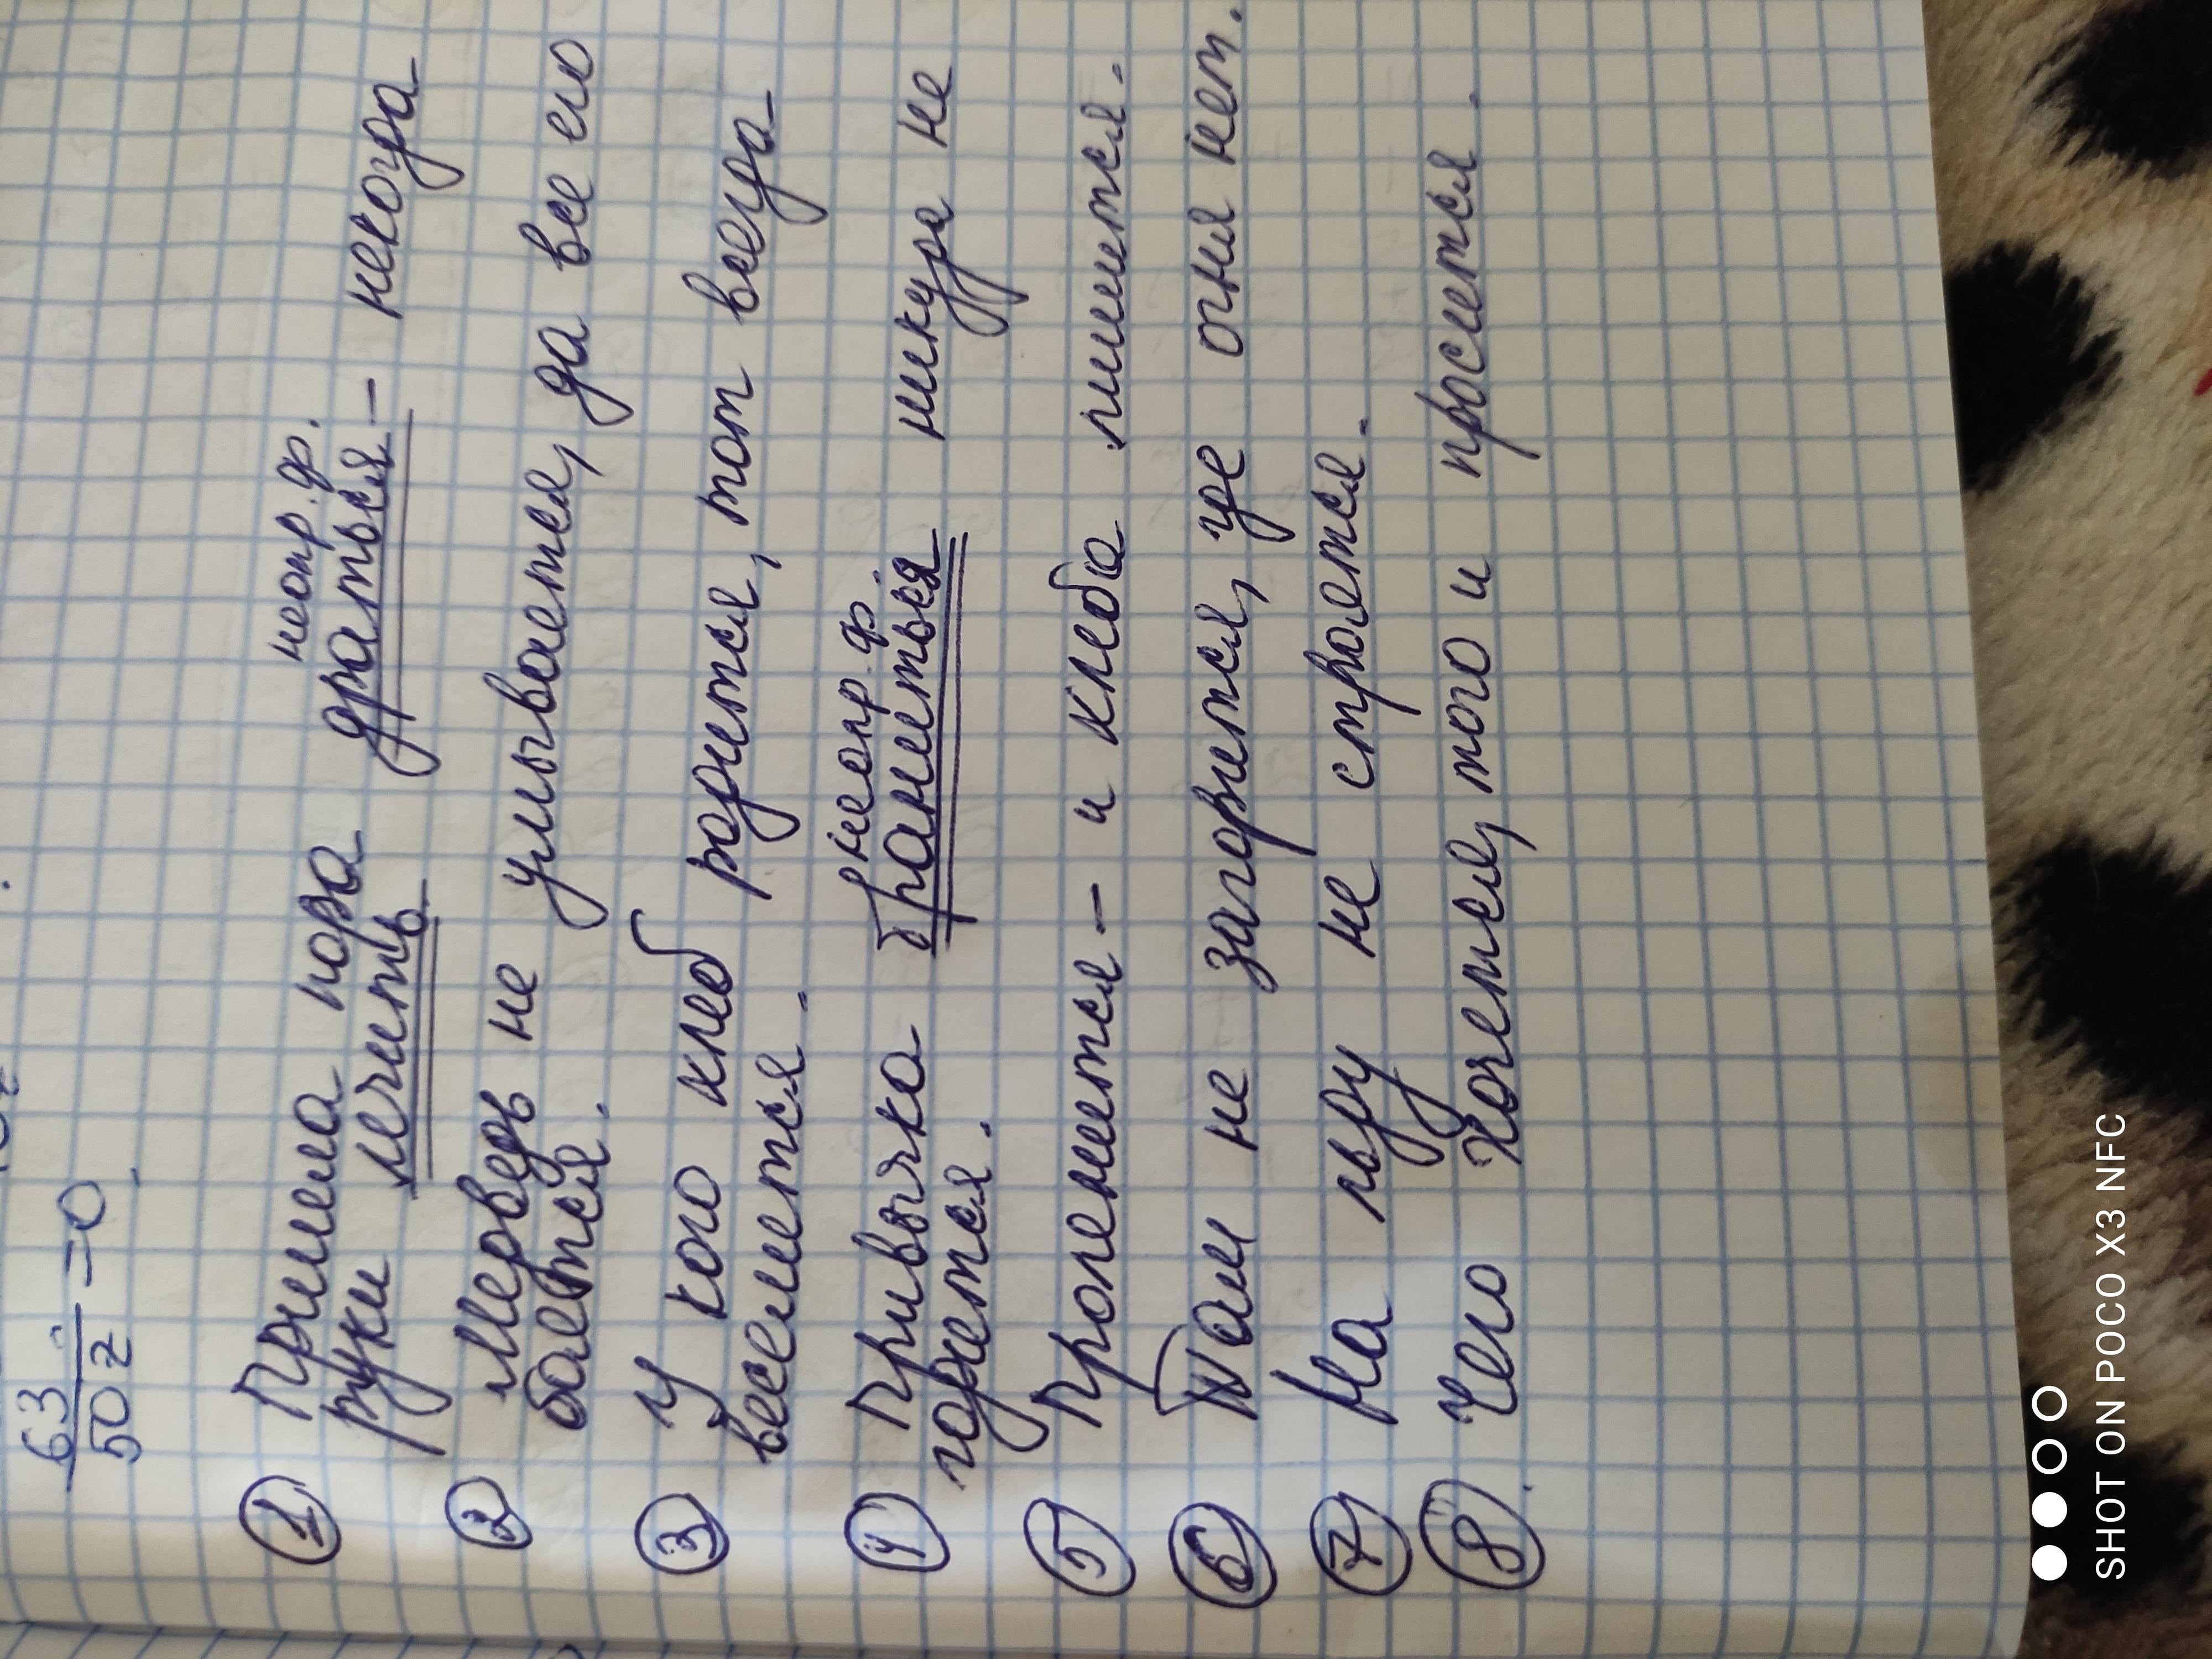 63
50z = 0
① Пришла пора неопр. ф. драться – некогда
руки лечить
② Медведь не умывается, да все его
боятся.
③ У кого хлеб родится, тот всегда
веселится.
④ Привычка неопр. ф. браниться никуда не
годится.
⑤ Проленится – и хлеба лишится.
⑥ Там не загордится, где огня нет.
⑦ На льду не строятся.
⑧ Чего хочется, того и просится.
SHOT ON POCO X3 NFC